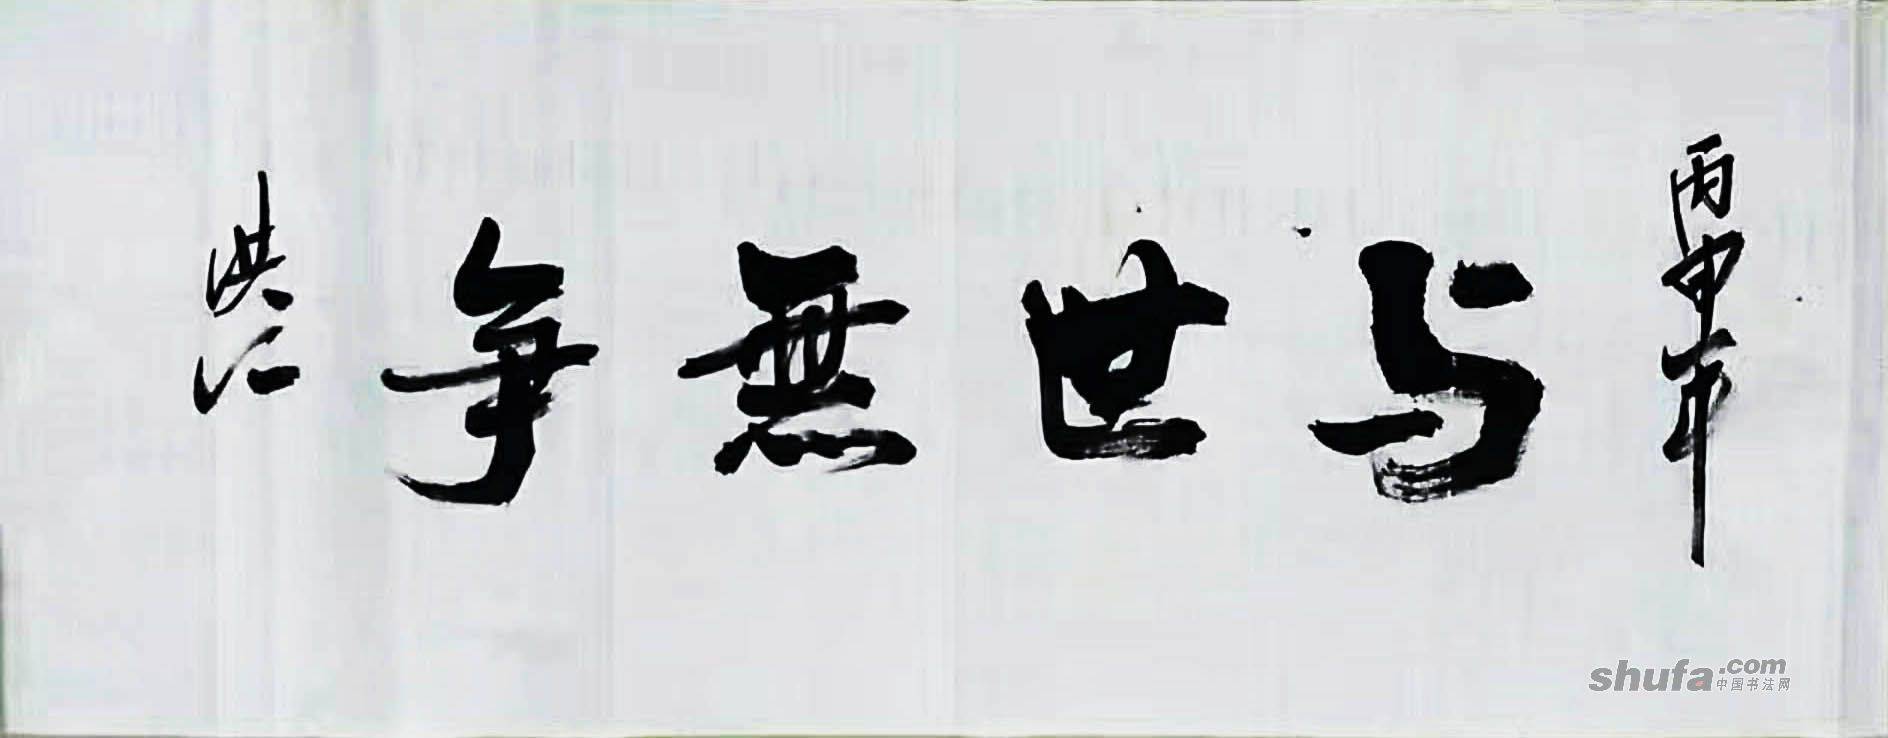 丙申年
与世無争
洪仁
shufa.com
中国书法网